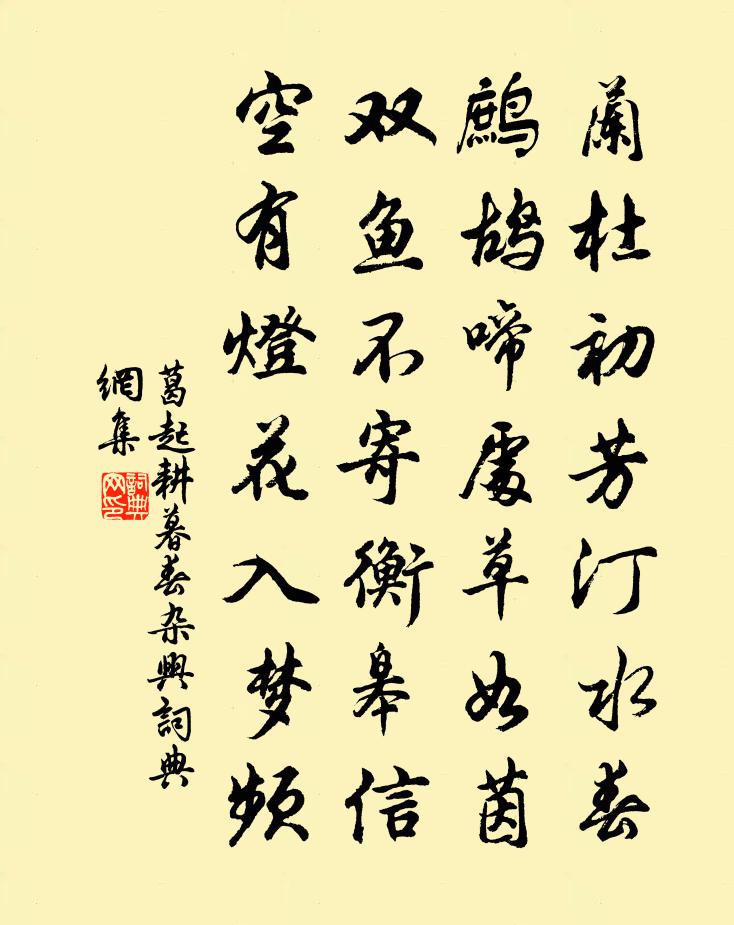 蘭杜初芳汀水春
鷓鴣啼處草如茵
双鱼不寄衡皋信
空有燈花入梦頻
葛起耕暮春杂興詞典
網集
詞典
网印